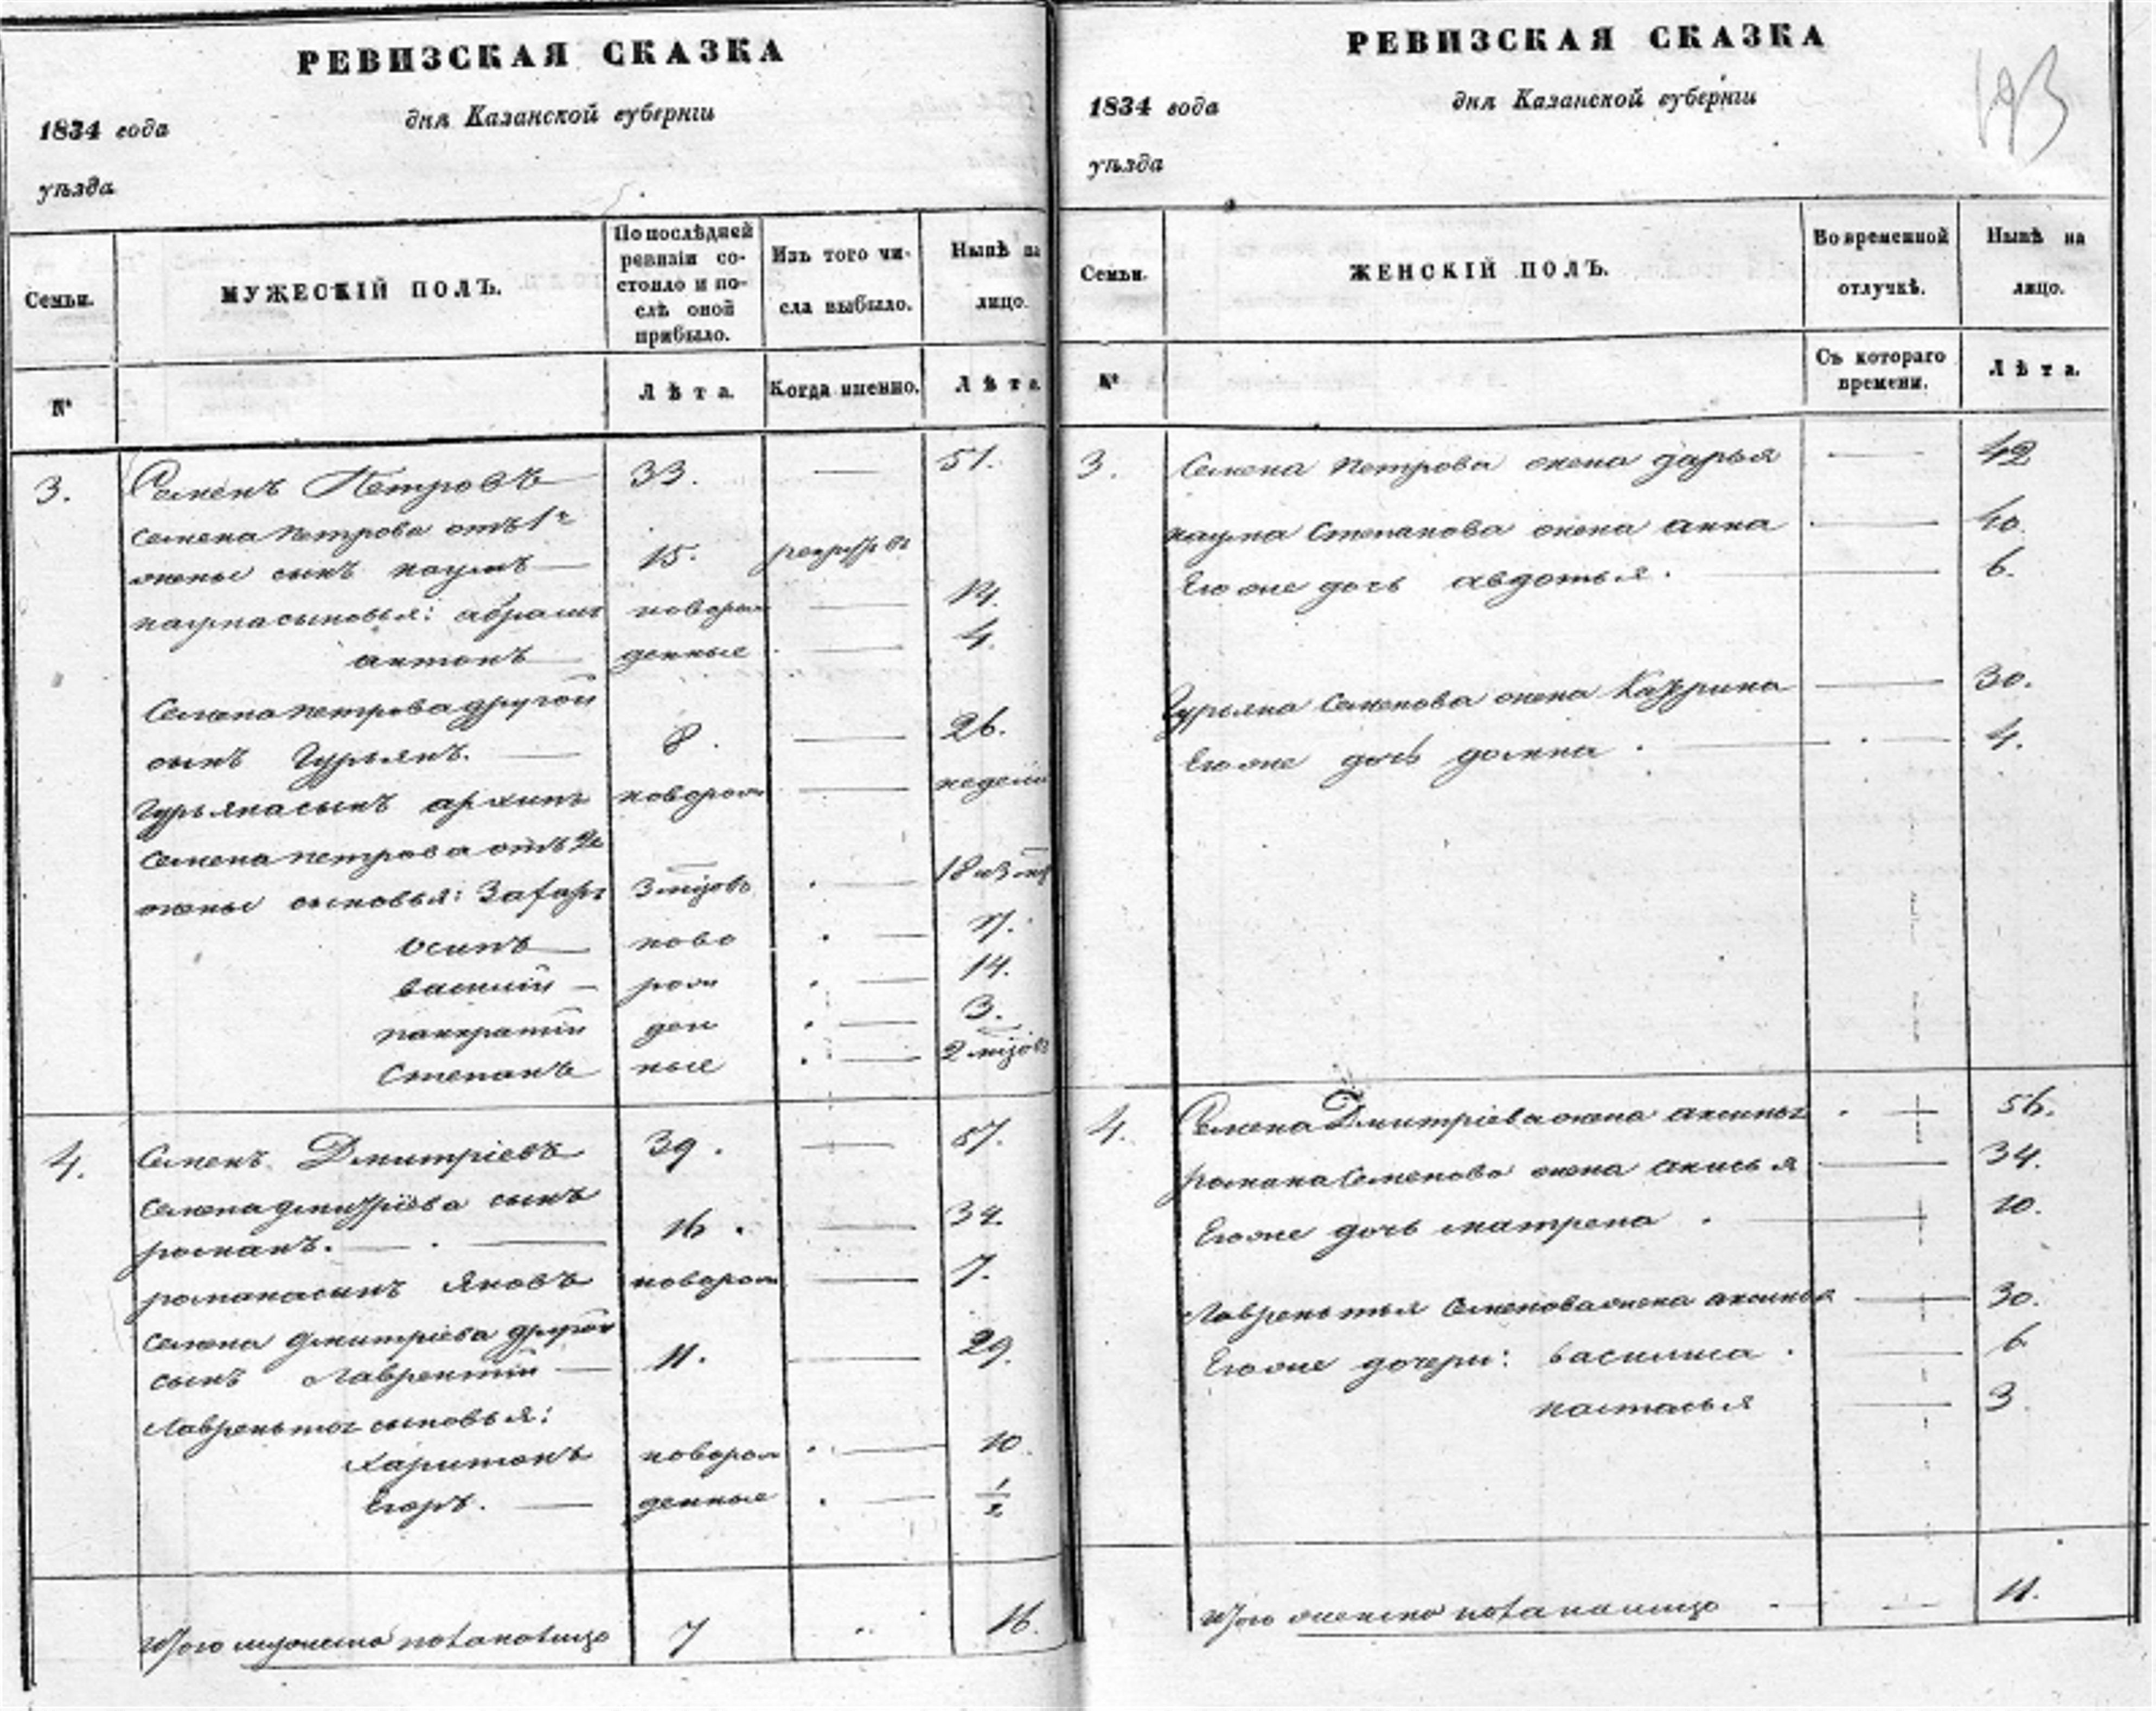 РЕВИЗСКАЯ СКАЗКА
1834 года
дня Казанской губернiи
уѣзда
Семьи.
МУЖЕСКIЙ ПОЛЪ.
По послѣдней
ревизiи со-
стояло и по-
слѣ оной
прибыло.
Изъ того чи-
сла выбыло.
Нынѣ на
лицо.
№
Лѣта.
Когда именно.
Лѣта
3. Семенъ Петровъ 33. — 51.
Семена Петрова отъ 1й
жены сынъ наумъ 15.
наума сыновья: абрамъ новорож — 14.
антонъ денные — 4.
Семена петрова другой
сынъ Гурьянъ. 8. — 26.
Гурьяна сынъ архипъ новорож — недели
Семена петрова отъ 2й
жены сыновья: Захаръ 3 мцовъ — 18
осипъ ново — 17.
василiй рож — 14.
панкратiй ден — 3.
Степанъ ные — 2 мцовъ
4. Семенъ Дмитрiевъ 39. — 57.
Семена дмитрiева сынъ
романъ. 16. — 34.
романа сынъ Яковъ новорож — 7.
Семена дмитрiева другой
сынъ Лаврентiй 11. — 29.
Лаврентья сыновья:
Харитонъ новорож — 10.
Егоръ. денные — 1/2
Итого мужеска пола на лицо 7 " 16.
РЕВИЗСКАЯ СКАЗКА
193
1834 года
дня Казанской губернiи
уѣзда
Семьи.
ЖЕНСКIЙ ПОЛЪ.
Во временной
отлучкѣ.
Нынѣ на
лицо.
№
Съ котораго
времени.
Лѣта.
3. Семена петрова жена дарья — 42
наума Степанова жена анна — 40.
Его же дочь авдотья. — 6.
Гурьяна Семенова жена Катерина — 30.
Его же дочь домна. — 4.
4. Семена Дмитрiева жена аксинья — 56.
романа Семенова жена анисья — 34.
Его же дочь матрена. — 10.
Лаврентья Семенова жена аксинья — 30.
Его же дочери: василиса. — 6
настасья — 3.
Итого женска пола на лицо — 11.